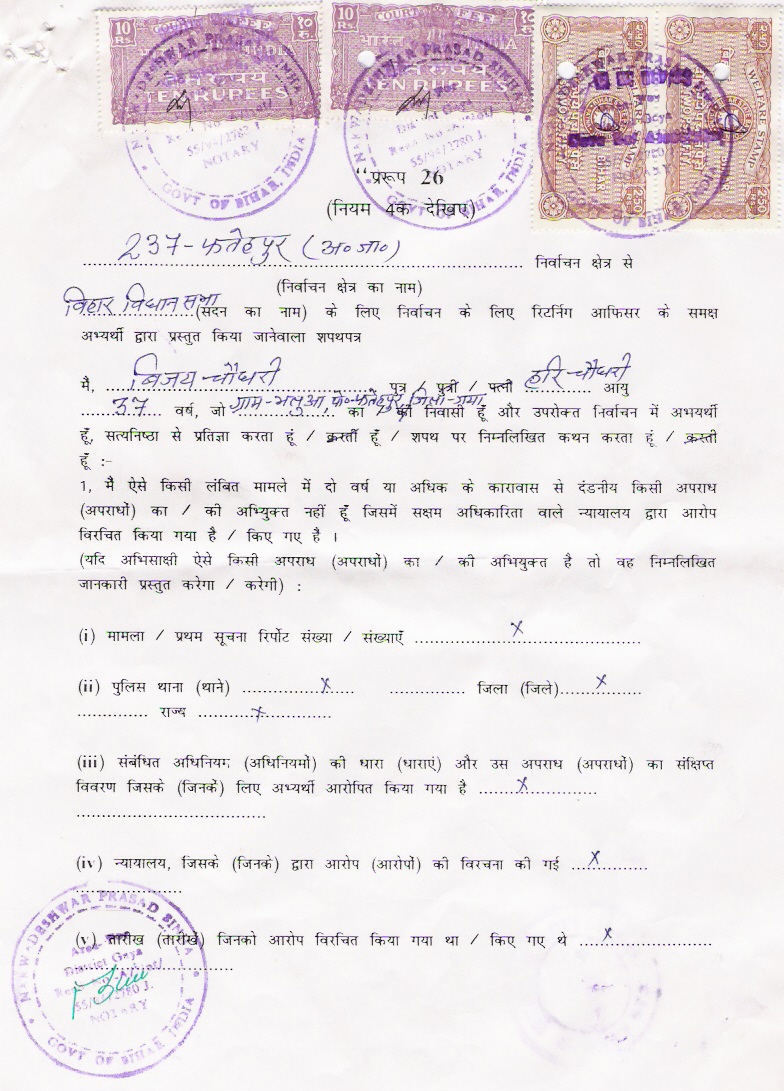 10 Rs. COURT FEE १० रु.
भारत INDIA
TEN RUPEES
10 Rs. COURT FEE १० रु.
भारत INDIA
दस रूपये
TEN RUPEES
WELFARE STAMP
BIHAR
NARWADESHWAR PRASAD SINHA
District Gaya
NOTARY
GOVT OF BIHAR, INDIA
“प्ररूप 26
(नियम 4क देखिए)
237-फतेहपुर (अ० जा०) निर्वाचन क्षेत्र से
(निर्वाचन क्षेत्र का नाम)
बिहार विधान सभा (सदन का नाम) के लिए निर्वाचन के लिए रिटर्निग आफिसर के समक्ष
अभ्यर्थी द्वारा प्रस्तुत किया जानेवाला शपथपत्र
मै, विजय चौधरी पुत्र / पुत्री / पत्नी हरि चौधरी आयु
37 वर्ष, जो ग्राम-भलुआ पो०-फतेहपुर जिला-गया का / की निवासी हूँ और उपरोक्त निर्वाचन में अभयर्थी
हूँ, सत्यनिष्ठा से प्रतिज्ञा करता हूं / करती हूँ / शपथ पर निम्नलिखित कथन करता हूं / करती
हूँ :-
1, मै ऐसे किसी लंबित मामले में दो वर्ष या अधिक के कारावास से दंडनीय किसी अपराध
(अपराधों) का / की अभियुक्त नहीं हूँ जिसमें सक्षम अधिकारिता वाले न्यायालय द्वारा आरोप
विरचित किया गया है / किए गए है ।
(यदि अभिसाक्षी ऐसे किसी अपराध (अपराधों) का / की अभियुक्त है तो वह निम्नलिखित
जानकारी प्रस्तुत करेगा / करेगी) :
(i) मामला / प्रथम सूचना रिर्पोट संख्या / संख्याएँ x
(ii) पुलिस थाना (थाने) x जिला (जिले) x
राज्य x
(iii) संबंधित अधिनियम (अधिनियमों) की धारा (धाराएं) और उस अपराध (अपराधों) का संक्षिप्त
विवरण जिसके (जिनके) लिए अभ्यर्थी आरोपित किया गया है x
(iv) न्यायालय, जिसके (जिनके) द्वारा आरोप (आरोपों) की विरचना की गई x
(v) तारीख (तारीखें) जिनको आरोप विरचित किया गया था / किए गए थे x
NARWADESHWAR PRASAD SINHA
District Gaya
NOTARY
GOVT OF BIHAR, INDIA